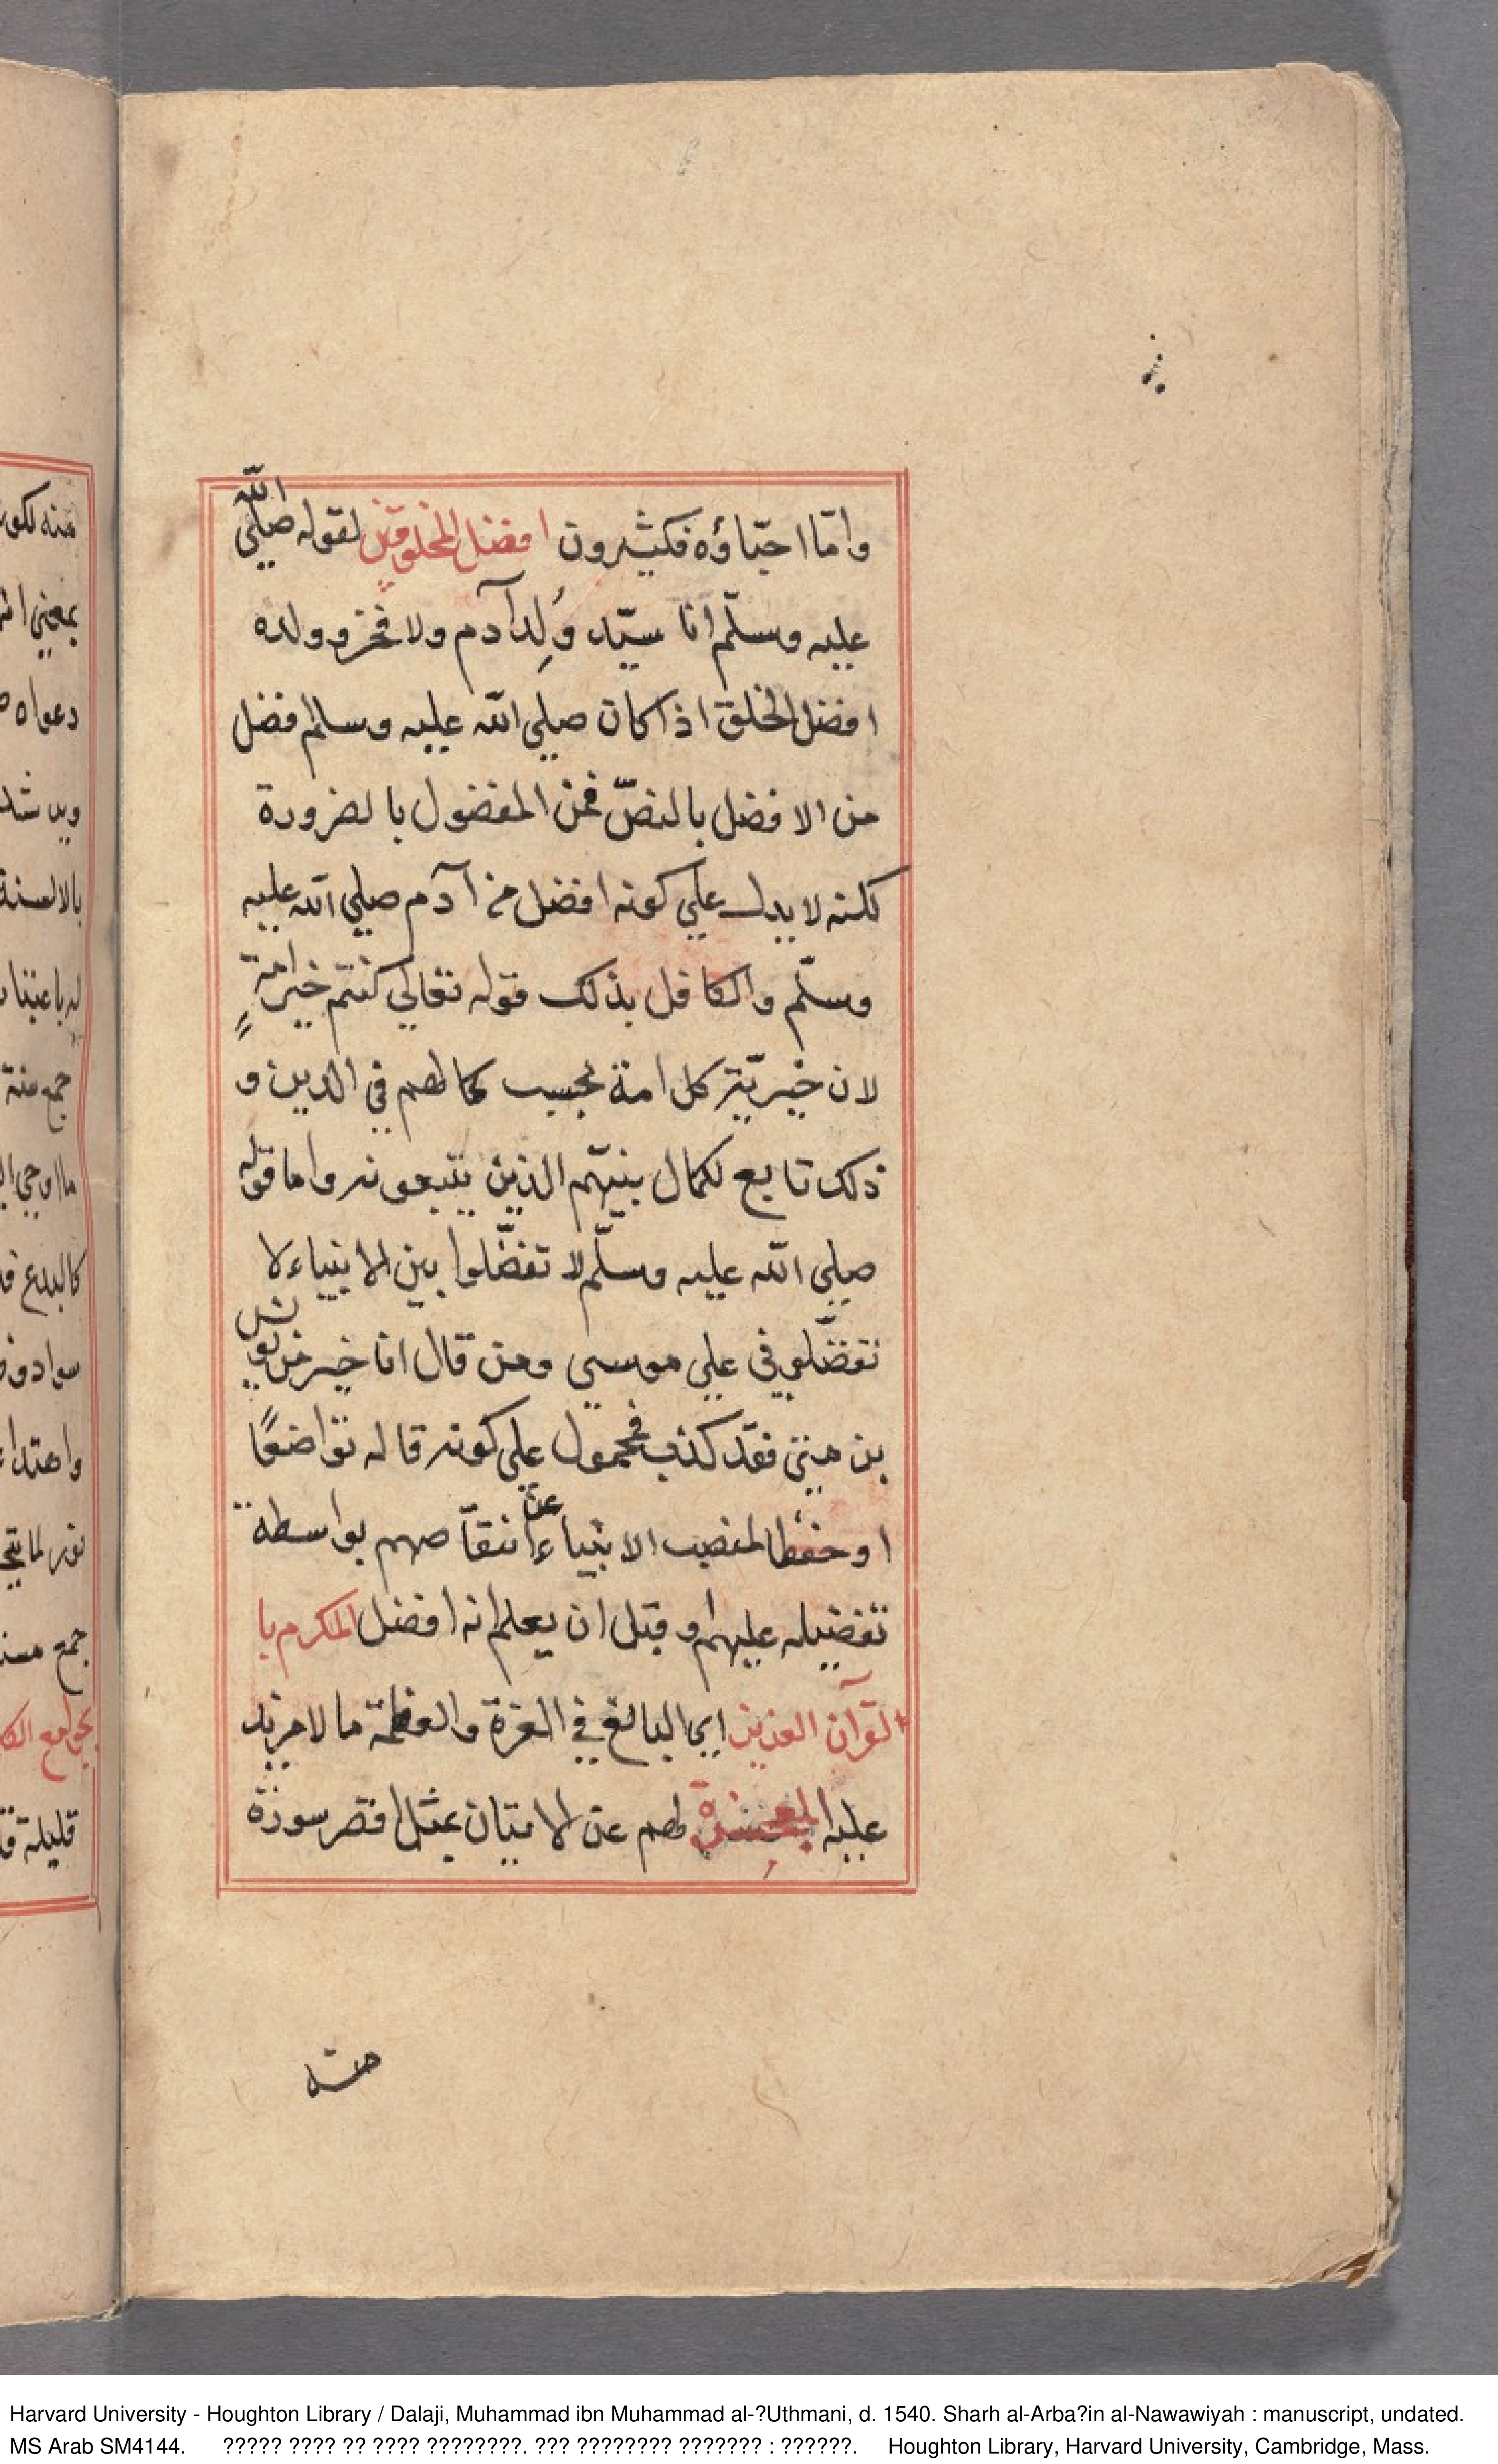 وامّا احبّاؤه فكثيرون افضل المخلوقين لقوله صلّي الله
عليه وسلّم انا سيّد وُلِد آدم ولا فخر وولده
افضل الخلق اذا كان صلي الله عليه وسلم افضل
من الافضل بالنصّ فمن المفضول بالضرورة
لكنه لا يدل علي كونه افضل من آدم صلي الله عليه
وسلّم والكافل بذلك قوله تعالي كنتم خير امةٍ
لان خيريّة كل امة بحسب كمالهم في الدين و
ذلك تابع لكمال نبيّهم الذين يتبعونه واما قوله
صلي الله عليه وسلّم لا تفضّلوا بين الانبياء لا
تفضّلوني علي موسي ومن قال انا خير من يونس
بن متي فقد كذب فمحمول علي كونه قاله تواضعًا
او حفظا لمنصب الانبياء عن انتقاصهم بواسطة
تفضيله عليهم او قبل ان يعلم انه افضل المكرم با
لقرآن العزيز اي البالغ في العزة والعظمة ما لا مزيد
عليه المعجزة لهم عن الاتيان بمثل اقصر سورة
منه
منه لكو
بمعني
دعواه
بالالسنة
له باعتبار
جمع سنة
ما اوحي
جمع
بجوامع الكلم
قليلة
Harvard University - Houghton Library / Dalaji, Muhammad ibn Muhammad al-?Uthmani, d. 1540. Sharh al-Arba?in al-Nawawiyah : manuscript, undated.
MS Arab SM4144. ????? ???? ?? ???? ????????. ??? ???????? ??????? : ??????. Houghton Library, Harvard University, Cambridge, Mass.